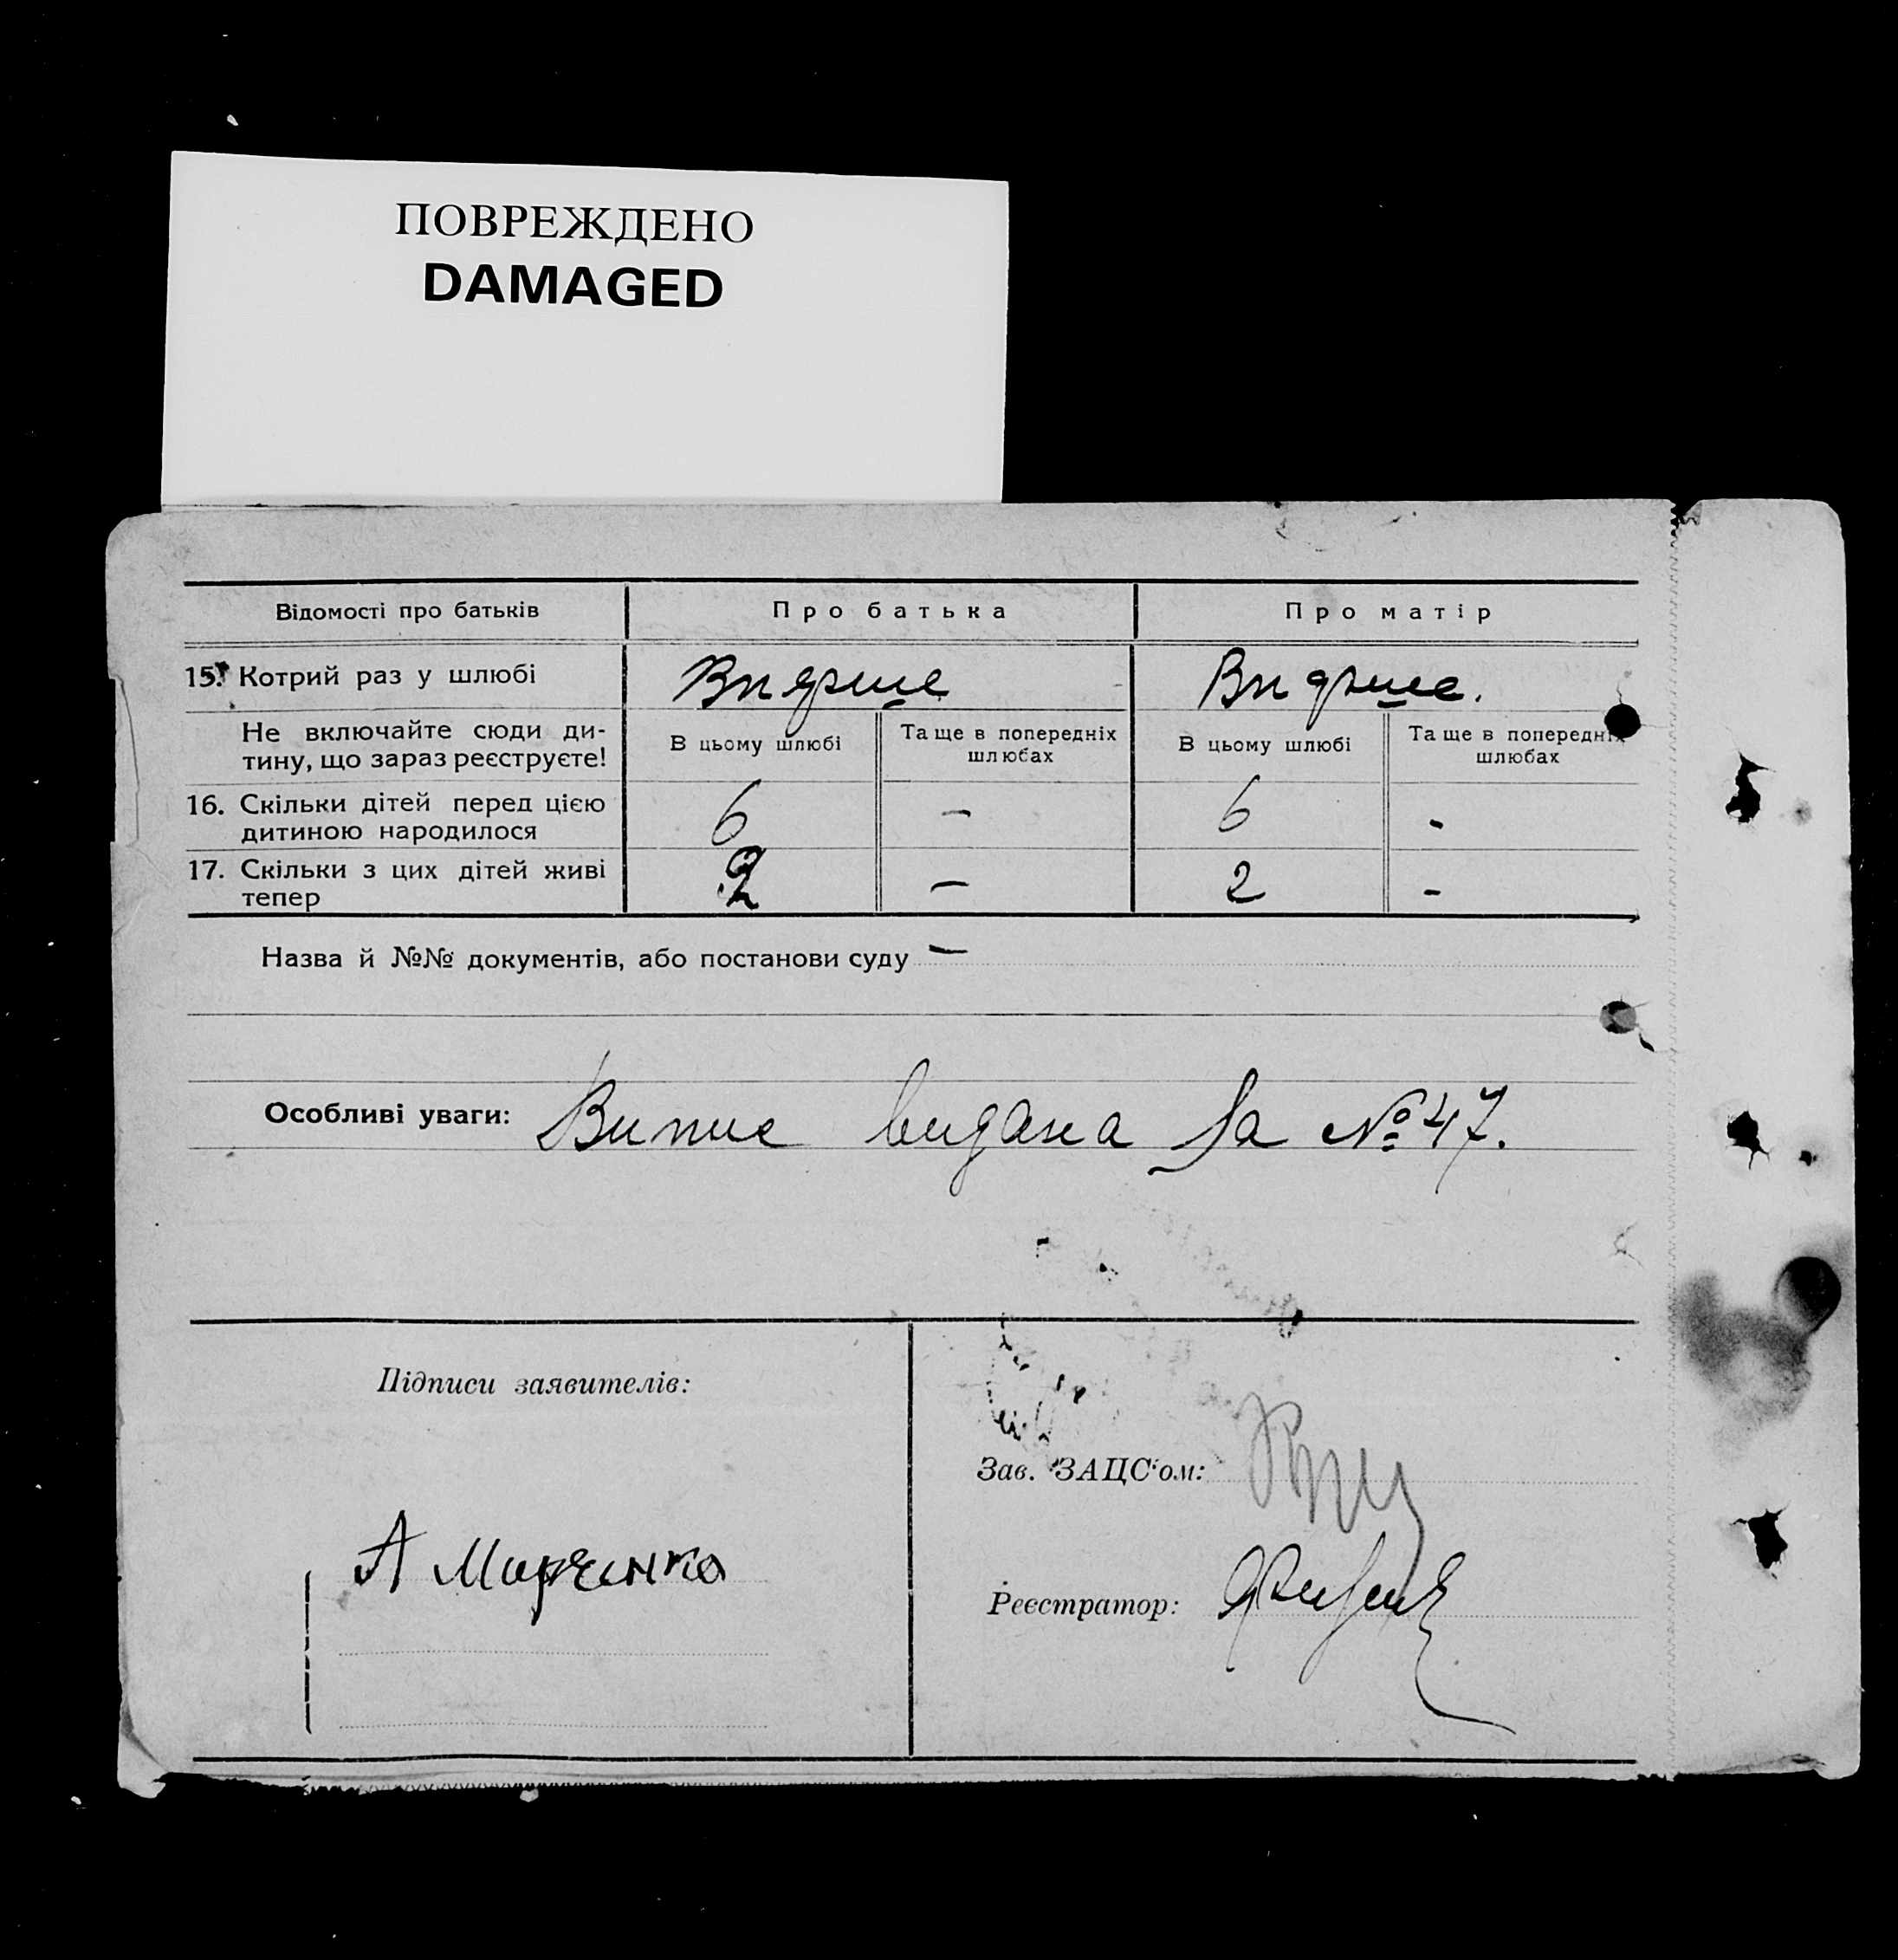 ПОВРЕЖДЕНО
DAMAGED
Відомості про батьків
Про батька
Про матір
15. Котрий раз у шлюбі
Вперше
Вперше.
Не включайте сюди ди-
тину, що зараз реєструєте!
В цьому шлюбі
Та ще в попередніх
шлюбах
В цьому шлюбі
Та ще в попередніх
шлюбах
16. Скільки дітей перед цією
дитиною народилося
6
—
6
-
17. Скільки з цих дітей живі
тепер
2
—
2
-
Назва й №№ документів, або постанови суду —
Особливі уваги: Випис видана За № 47.
Підписи заявителів:
А Марченко
Зав. ЗАЦС'ом:
Реєстратор: